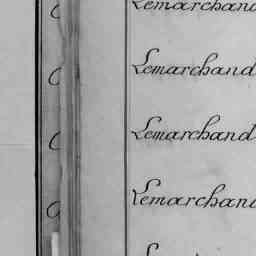 Lemarchand
Lemarchand
Lemarchand
Lemarchand